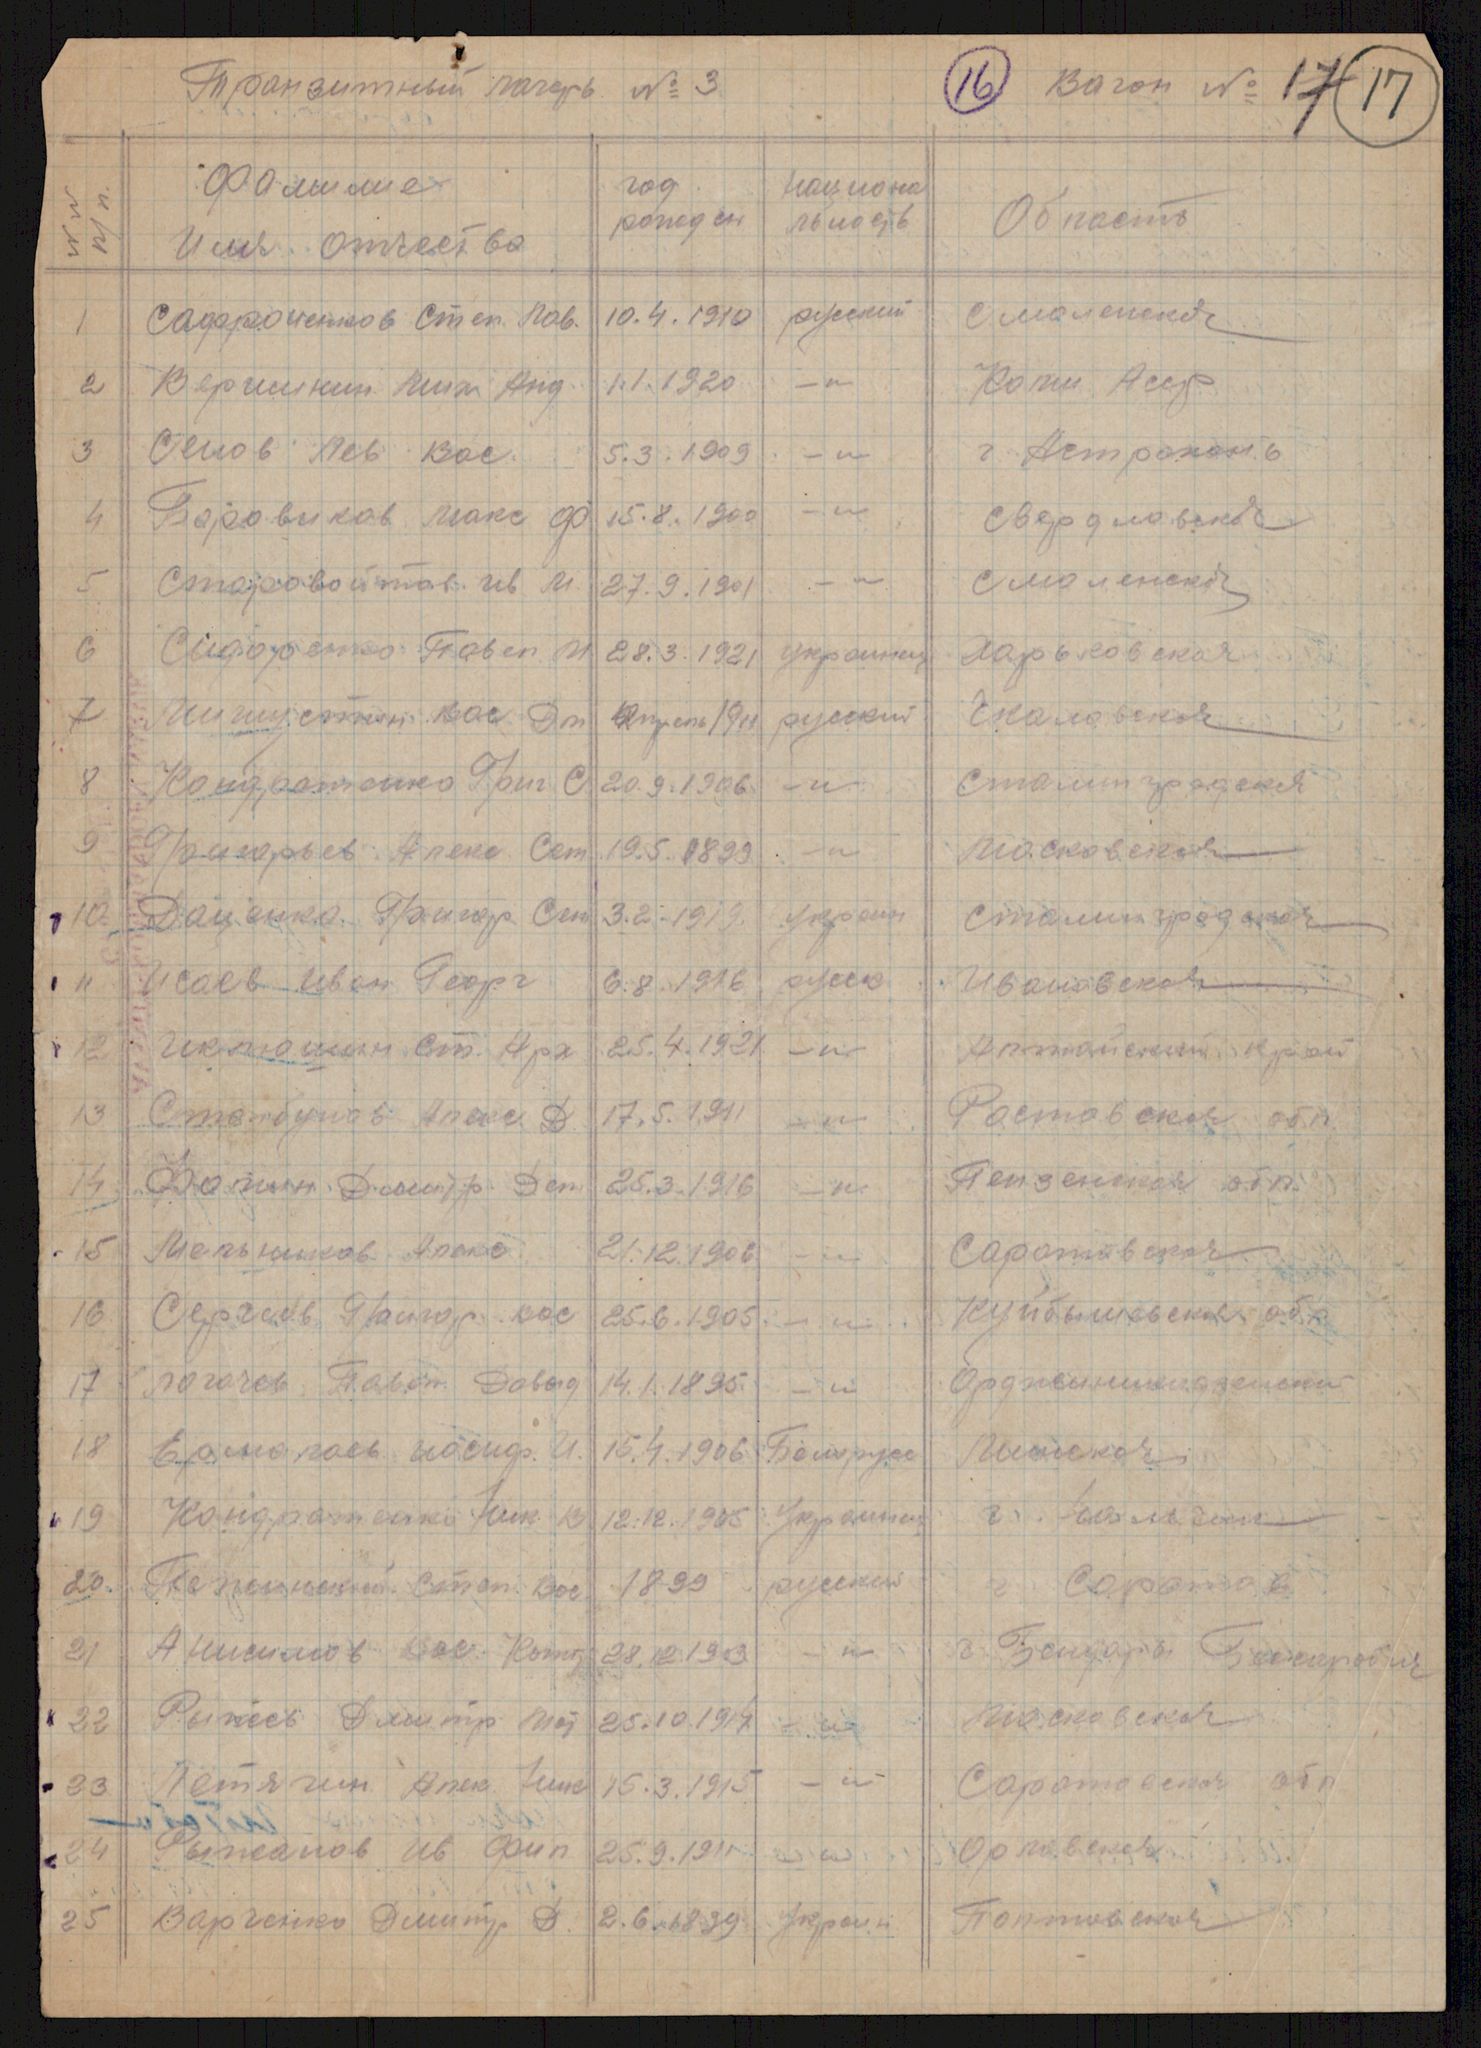 Транзитный лагерь №3 16 Вагон № 17 17
№ № п/п Фамилие Имя отчество год рожден национальность Область
1 Сафроненков Степ. Пав. 10.4.1910 русский Смоленская
2 Вершинин Мих Анд 1.1.1920 -"- Коми Асср
3 Сенов Лев Вас. 5.3.1909 -"- г. Астрахань
4 Боровиков Макс Ф 15.8.1900 -"- Свердловская
5 Старовойтов Ив И. 27.9.1901 -"- Смоленская
6 Сидоренко Павел И 28.3.1921 украинец Харьковская
7 Мишустин Вас Дм Апрель 1911 русский Чкаловская
8 Кондратенко Григ С 20.9.1906 -"- Сталинградская
9 Григорьев Алекс Сем 19.5.1899 -"- Московская
10 Даценко Григор Сем 3.2.1919 Украин Сталинградская
11 Исаев Иван Георг 6.8.1916 русск Ивановская
12 Иклюшин Ст. Арх 25.4.1921 -"- Алтайский край
13 Стамбулов Алекс. Д 17.5.1911 -"- Ростовская обл.
14 Фомин Дмитр. Дем 25.3.1916 -"- Пензенская обл.
15 Мельников Алекс 21.12.1906 -"- Саратовская
16 Сергеев Григор. Вас 25.6.1905 -"- Куйбышевская обл
17 Логачев Павел Давыд 14.1.1895 -"- Орджоникидзенский
18 Ермалось Иосиф. И. 15.4.1906 Белорусс Минская
19 Кондратенко Ник В 12.12.1905 Украинец г. Нальчик
20. Степ. Вас. 1899 русский г Саратов
21 Анисимов Вас. 28.12.1903 -"- г. Бендеры Бессарабия
22 Рыжов Дмитр 25.10.1914 -"- Московская
23 Петягин Алек Ник 15.3.1915 -"- Саратовская обл
24 Рыжанов Ив Фил 25.9.1911 -"- Орловская
25 Варченко Дмитр Д. 2.6.1899 Украин Полтавская